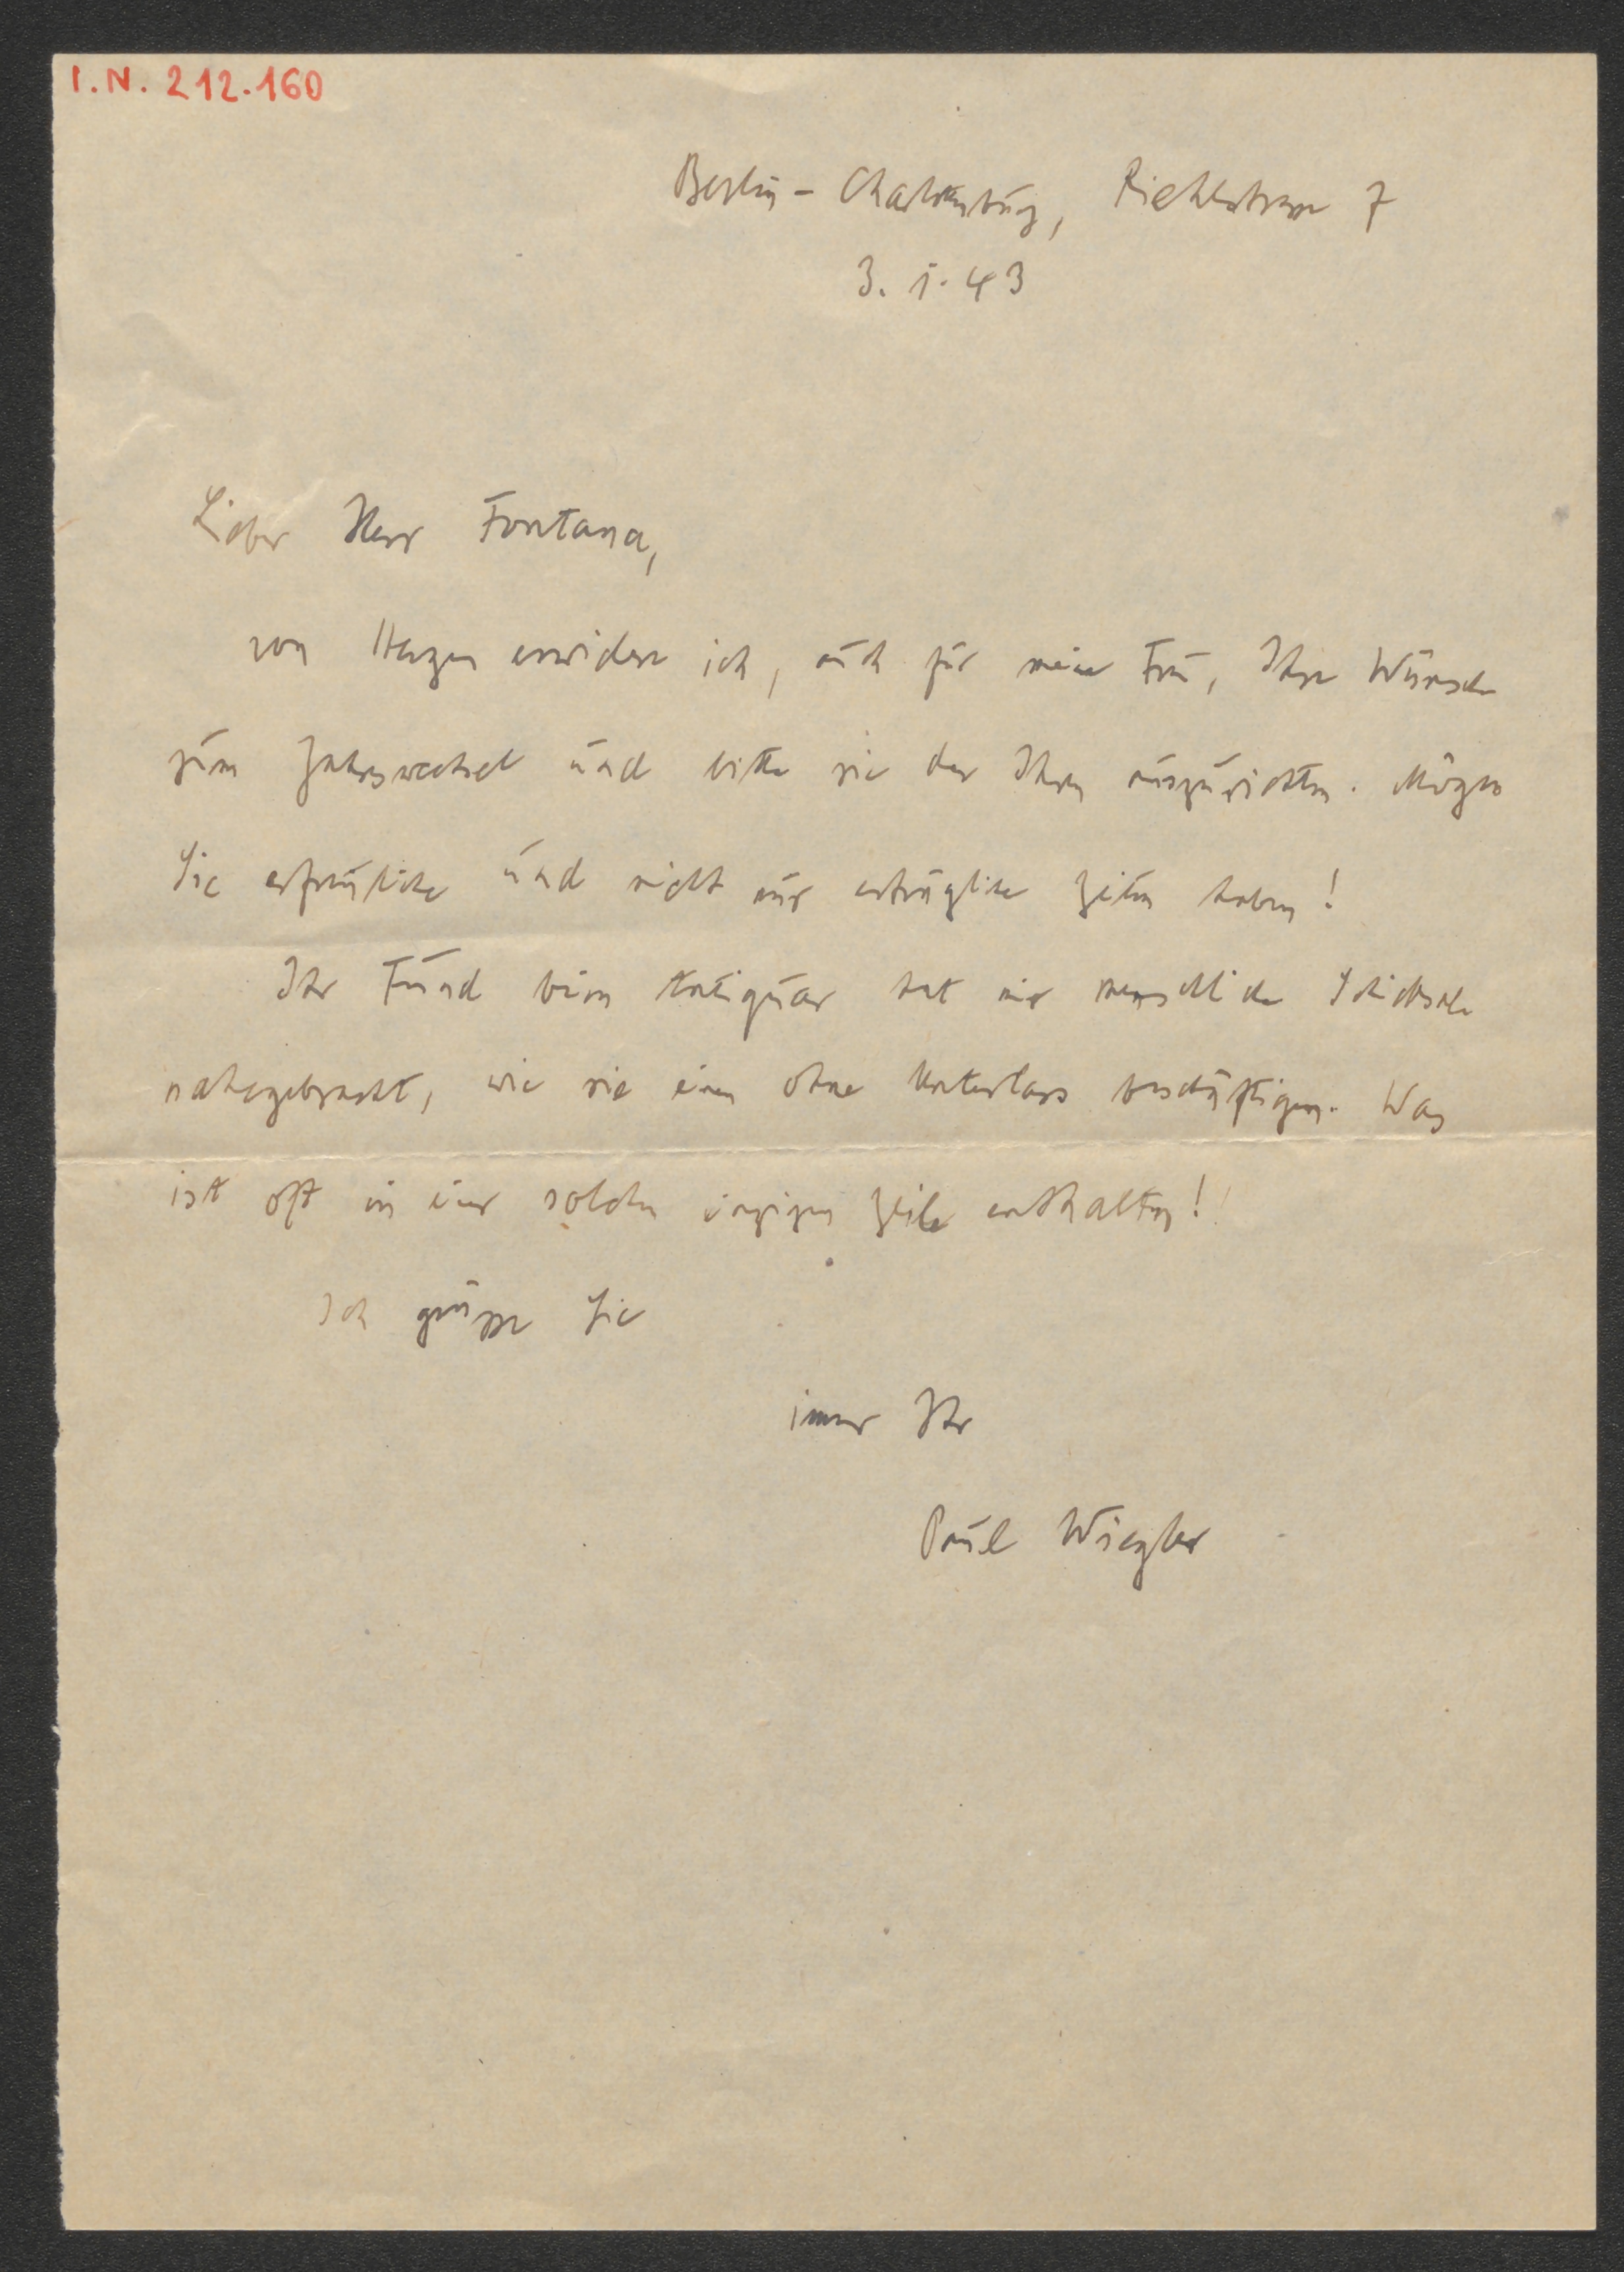 I.N. 212.160
Berlin-Charlottenburg, Riehlstrasse 7
3. 1. 43
Lieber Herr Fontana,
von Herzen erwidere ich, auch für meine Frau, Ihre Wünsche
zum Jahreswechsel und bitte sie den Ihren auszurichten. Mögen
Sie erfreuliche und nicht nur erträgliche Zeiten haben!
Ihr Fund beim Antiquar hat mir menschliche Schicksale
nahegebracht, wie sie einen ohne Unterlass beschäftigen. Was
ist oft in einer solchen einzigen Zeile enthalten!
Ich grüsse Sie
immer Ihr
Paul Wiegler